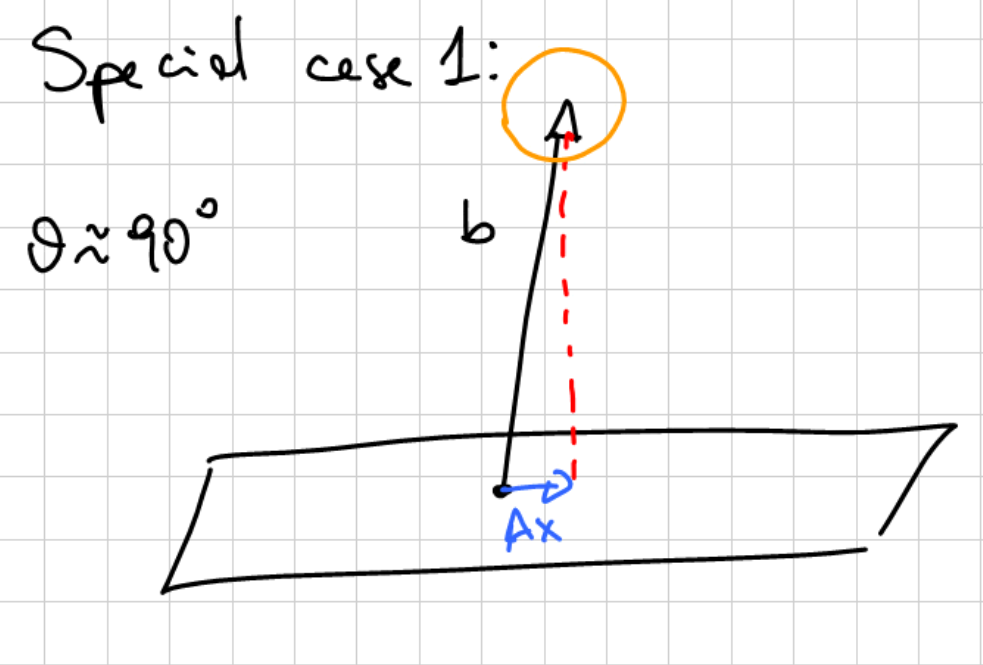 Special case 1:
θ ≈ 90°
b
Ax